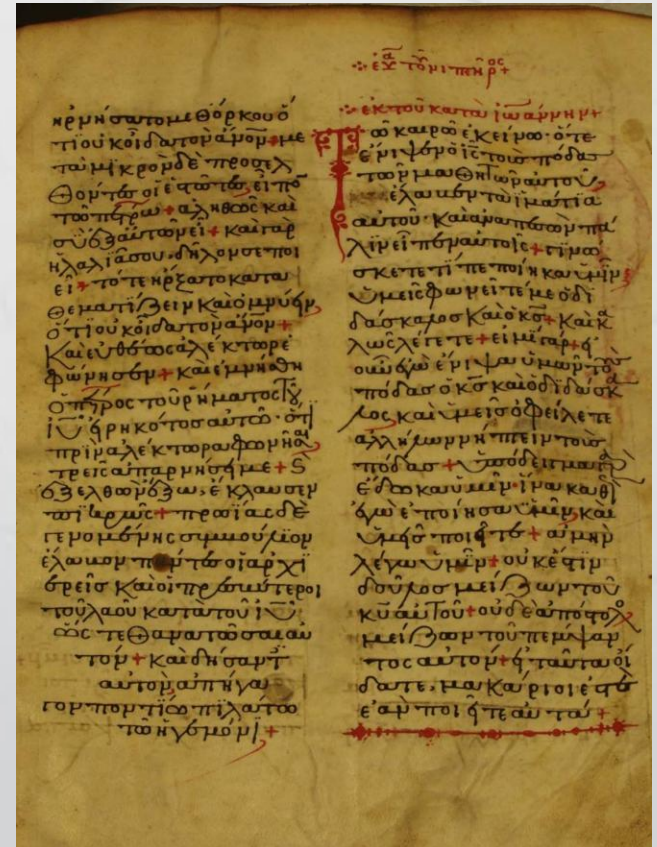 ηρνήσατο μεθόρκου ὁ
τι οὐκ οἶδα τὸν ἄνον + με
τα μικρὸν δὲ προσελ
θόντες οἱ ἑστῶτες εἶπο
τῶ πέτρω + ἀληθῶς καὶ
σὺ ἐξ αὐτῶν εἶ + καὶ γὰρ
ἡ λαλιά σου δῆλον σε ποι
εῖ + τότε ἤρξατο κατα
θεματίζειν καὶ ὀμνύειν
ὅτι οὐκ οἶδα τὸν ἄνον +
Καὶ εὐθέως ἀλέκτωρ ἐ
φώνησεν + καὶ ἐμνήσθη
ὁ πέτρος τοῦ ῥήματος τοῦ
ἰῦ εἰρηκότος αὐτῶ· ὅτι
πρὶν ἀλέκτορα φωνῆσαι
τρεὶς ἀπαρνήση με + ϛ
ἐξελθὼν ἔξω, ἔκλαυσεν
πικρῶς + πρωΐας δὲ
γενομένης συμβούλιον
ἔλαβον πάντες οἱ ἀρχι
ερεῖς καὶ οἱ πρεσβύτεροι
τοῦ λαοῦ κατὰ τοῦ ἰῦ
ὥστε θανατῶσαι αὐ
τόν + καὶ δήσαντ
αὐτὸν ἀπήγα
γον ποντίω πιλάτω
τῶ ἡγεμόνι +
ἐκ τοῦ κατὰ ἰωάννην +
Τῶ καιρῶ ἐκείνω· ὅτε
ἔνιψεν ὁ ἰς τοὺς πόδας
τῶν μαθητῶν αὐτοῦ,
ἔλαβεν τὰ ἱμάτια
αὐτοῦ· καὶ ἀναπεσὼν πά
λιν εἶπεν αὐτοῖς + γινώ
σκετε τί πεποίηκα ὑμῖν;
ὑμεῖς φωνεῖτέ με ὁ δι
δάσκαλος καὶ ὁ κς + καὶ κα
λῶς λέγετε + εἰμὶ γάρ + εἰ
οὖν ἐγὼ ἔνιψα ὑμῶν τοὺς
πόδας ὁ κς καὶ ὁ διδάσκα
λος, καὶ ὑμεῖς ὀφείλετε
ἀλλήλων νίπτειν τοὺς
πόδας + ὑπόδειγμα γὰρ
ἔδωκα ὑμῖν· ἵνα καθὼ
ἐγὼ ἐποίησα ὑμῖν, καὶ
ὑμεῖς ποιῆτε + ἀμὴν
λέγω ὑμῖν + οὐκ ἔστιν
δοῦλος μείζων τοῦ
κυ αὐτοῦ + οὐδὲ ἀπόστολος
μείζων τοῦ πέμψαν
τος αὐτόν + εἰ ταῦτα οἴ
δατε, μακάριοί ἐστε
ἐὰν ποιῆτε αὐτά +